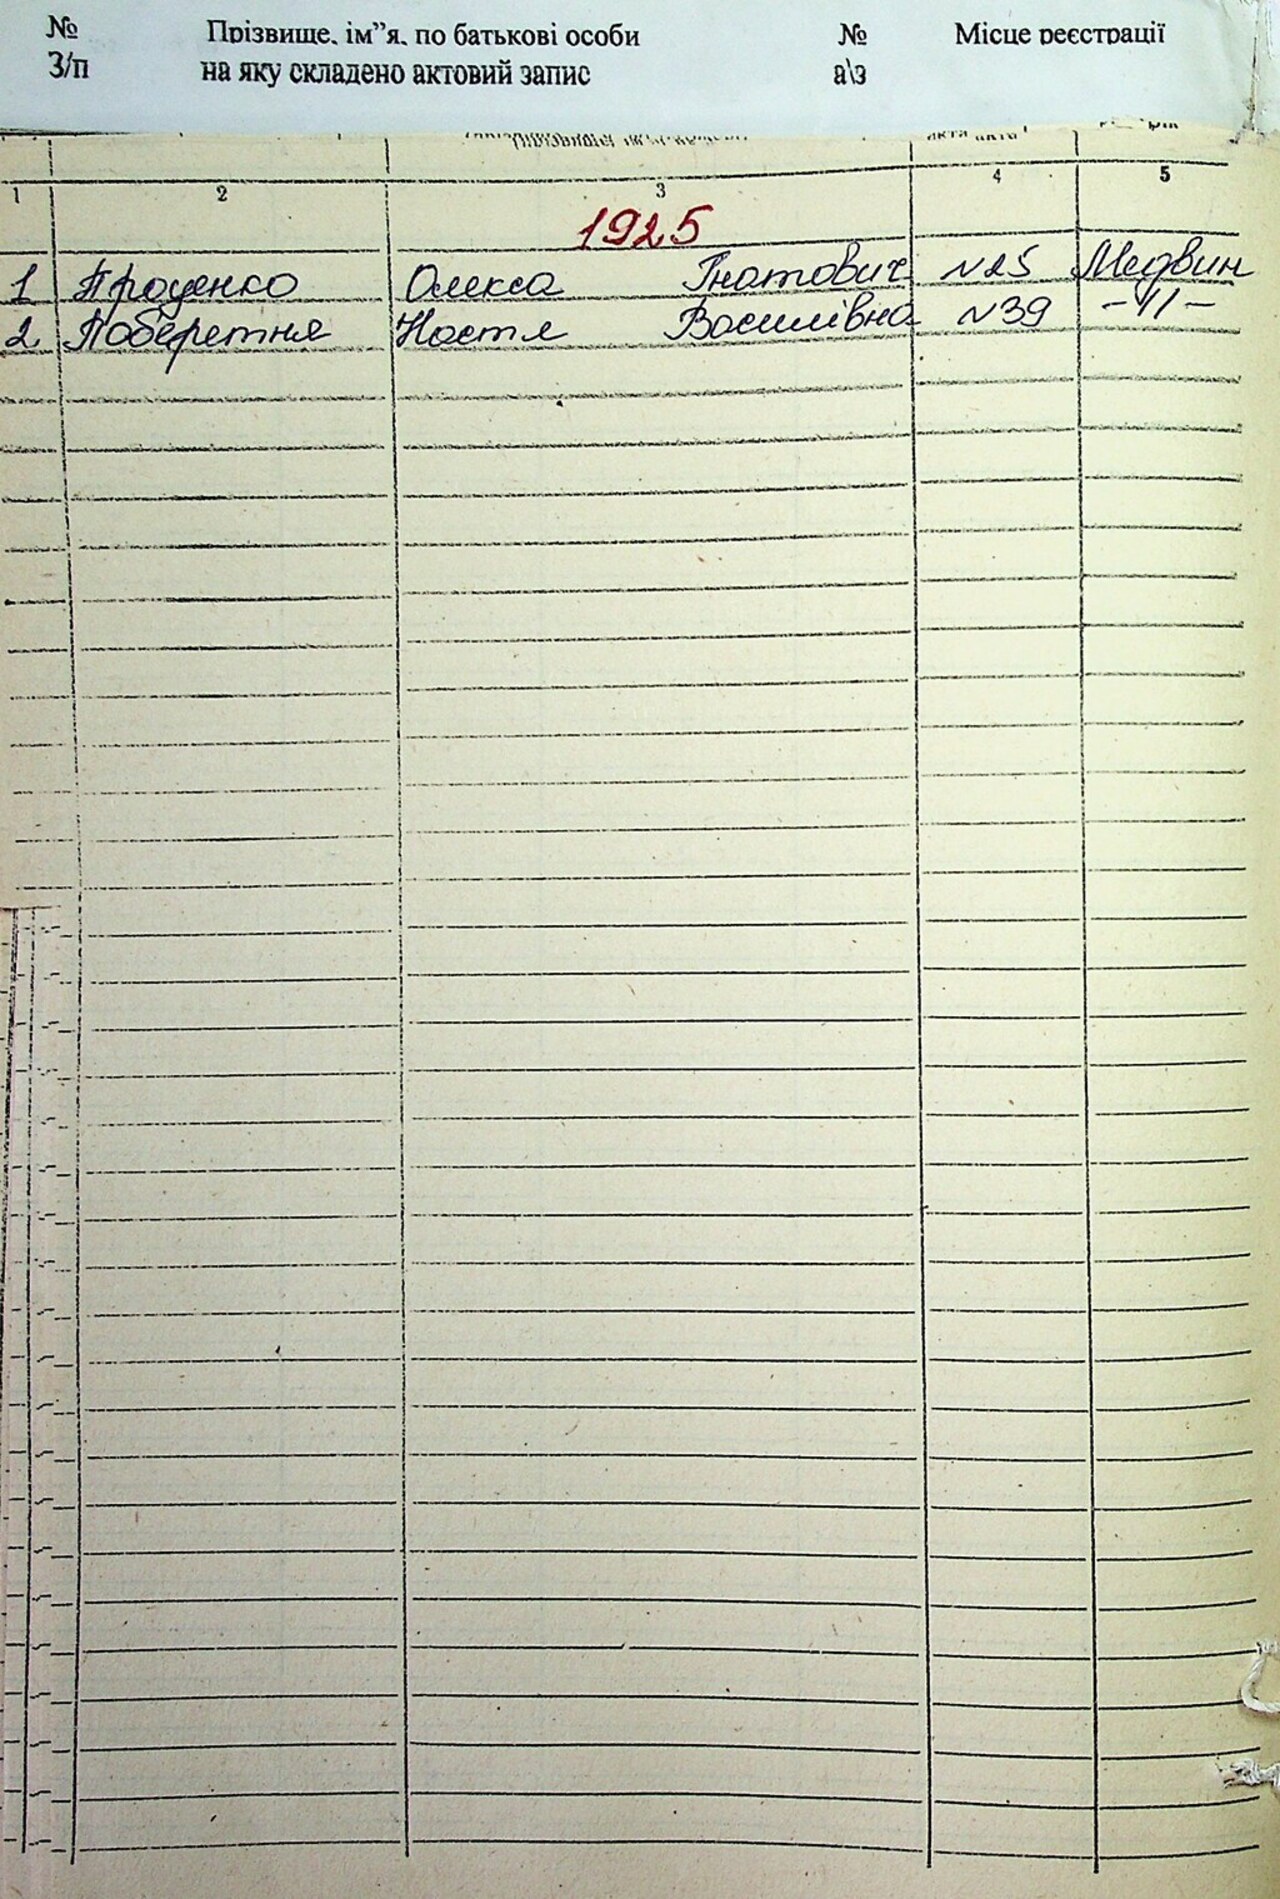 № Прізвище, ім”я, по батькові особи № Місце реєстрації
З/п на яку складено актовий запис а\з
1 2 3 4 5
1925
1 Проценко Олекса Гнатович №25 Медвин
2 Поберетня Настя Василівна №39 -//-